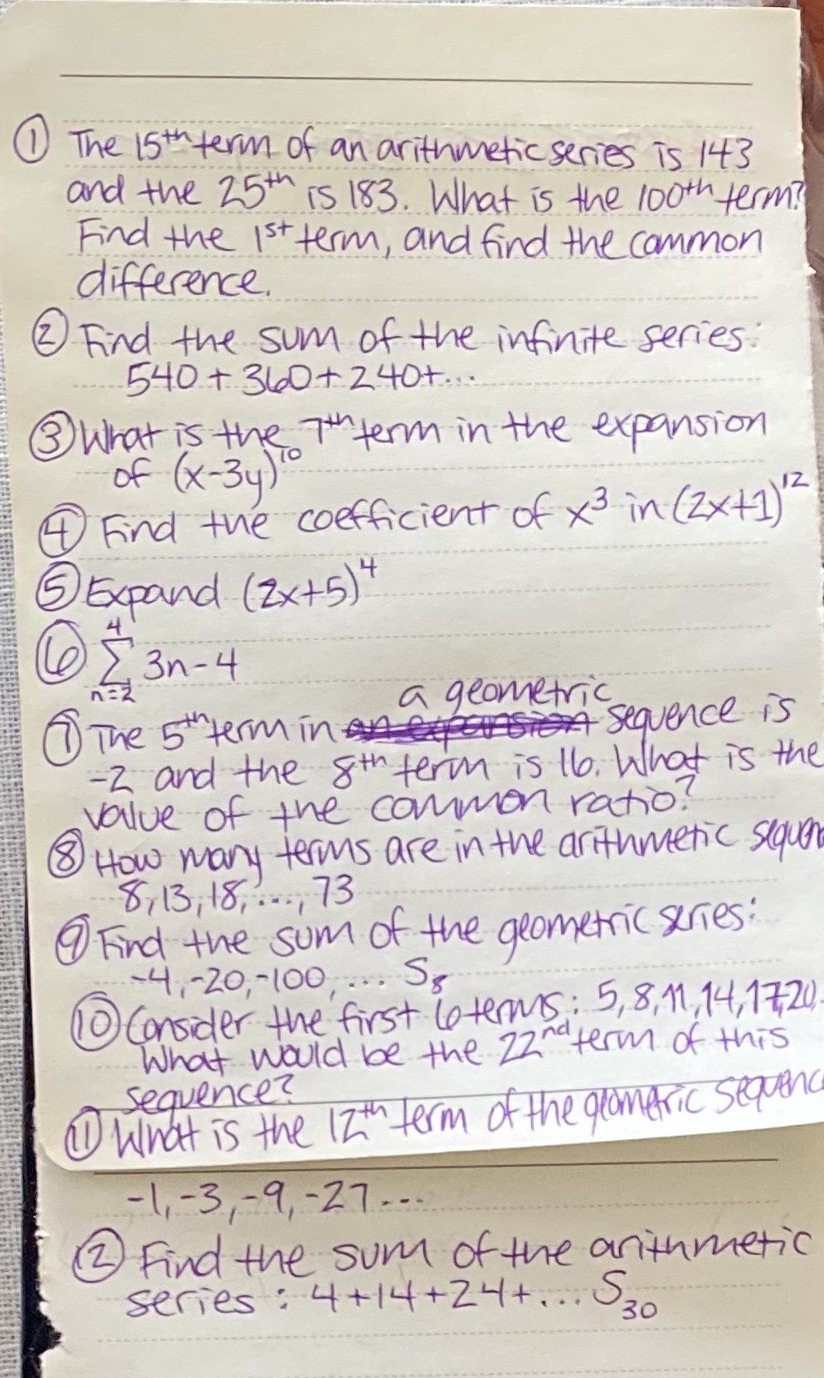 ① The 15th term of an arithmetic series is 143
and the 25th is 183. What is the 100th term?
Find the 1st term, and find the common
difference.
② Find the sum of the infinite series:
540 + 360 + 240 + ...
③ What is the 7th term in the expansion
of (x-3y)^10
④ Find the coefficient of x³ in (2x+1)^12
⑤ Expand (2x+5)^4
⑥ 4
∑ 3n-4
n=2
a geometric
⑦ The 5th term in an expansion sequence is
-2 and the 8th term is 16. What is the
value of the common ratio?
⑧ How many terms are in the arithmetic sequen
8, 13, 18, ..., 73
⑨ Find the sum of the geometric series:
-4, -20, -100, ... S₈
⑩ Consider the first 6 terms: 5, 8, 11, 14, 17, 20.
What would be the 22nd term of this
sequence?
⑪ What is the 12th term of the geometric sequenc
-1, -3, -9, -27...
⑫ Find the sum of the arithmetic
series: 4 + 14 + 24 + ... S₃₀